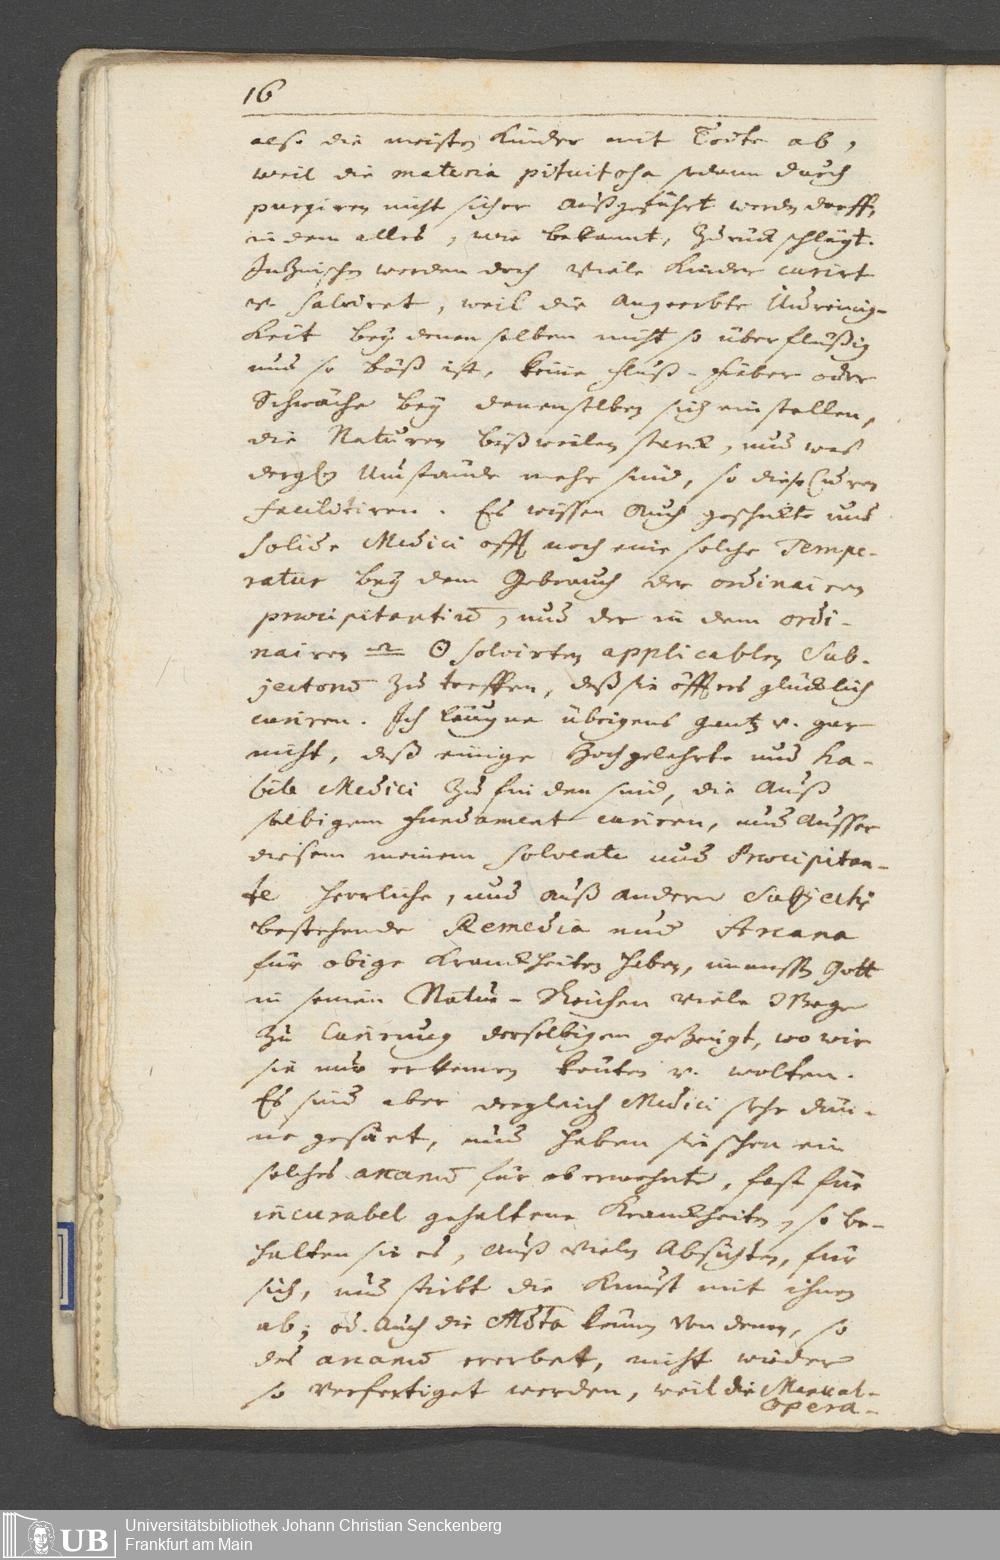 16
also die meisten Kinder mit Tode ab,
weil die materia pituitosa sodann durch
purgiren nicht sicher außgeführt werden darff,
in dem alles, wie bekannt, zurück schlägt.
Inzwischen werden doch viele Kinder curirt
u. salviret, weil die angeerbte Unreinig-
keit bey denenselben nicht so überflüßig
und so böß ist, keine Fluß-Fieber oder
Schwäche bey denenselben sich einstellen,
die Naturen bißweilen starck, und was
dergl. Umstände mehr sind, so diese Curen
facilitiren. Es wissen auch geschickte und
solide Medici offt noch eine solche Tempe-
ratur bey dem Gebrauch der ordinairen
praecipitantium, und der in dem ordi-
nairen solvirten applicablen Sub-
jectorum zu treffen, daß sie öffters glücklich
curiren. Ich läugne übrigens gantz u. gar
nicht, daß einige Hochgelehrte und ha-
bile Medici zu finden sind, die auß
selbigem Fundament curiren, und ausser
diesem meinem Solvente und Praecipitan-
te herrliche, und auß andern Subjectis
bestehende Remedia und Arcana
für obige Kranckheiten haben, immassen Gott
in seinen Natur-Reichen viele Wege
zu Curirung derselbigen gezeigt, wo wir
sie nur erkennen könten u. wolten.
Es sind aber dergleich Medici sehr dün-
ne gesäet, und haben sie schon ein
solches arcanum für oberwehnte, fast für
incurabel gehaltene Kranckheiten, so be-
halten sie es, auß vielen Absichten, für
sich, und stirbt die Kunst mit ihnen
ab; od. auch die können von denen, so
das arcanum ererbet, nicht wieder
so verfertiget werden, weil die Manual-
opera-
Universitätsbibliothek Johann Christian Senckenberg
UB Frankfurt am Main